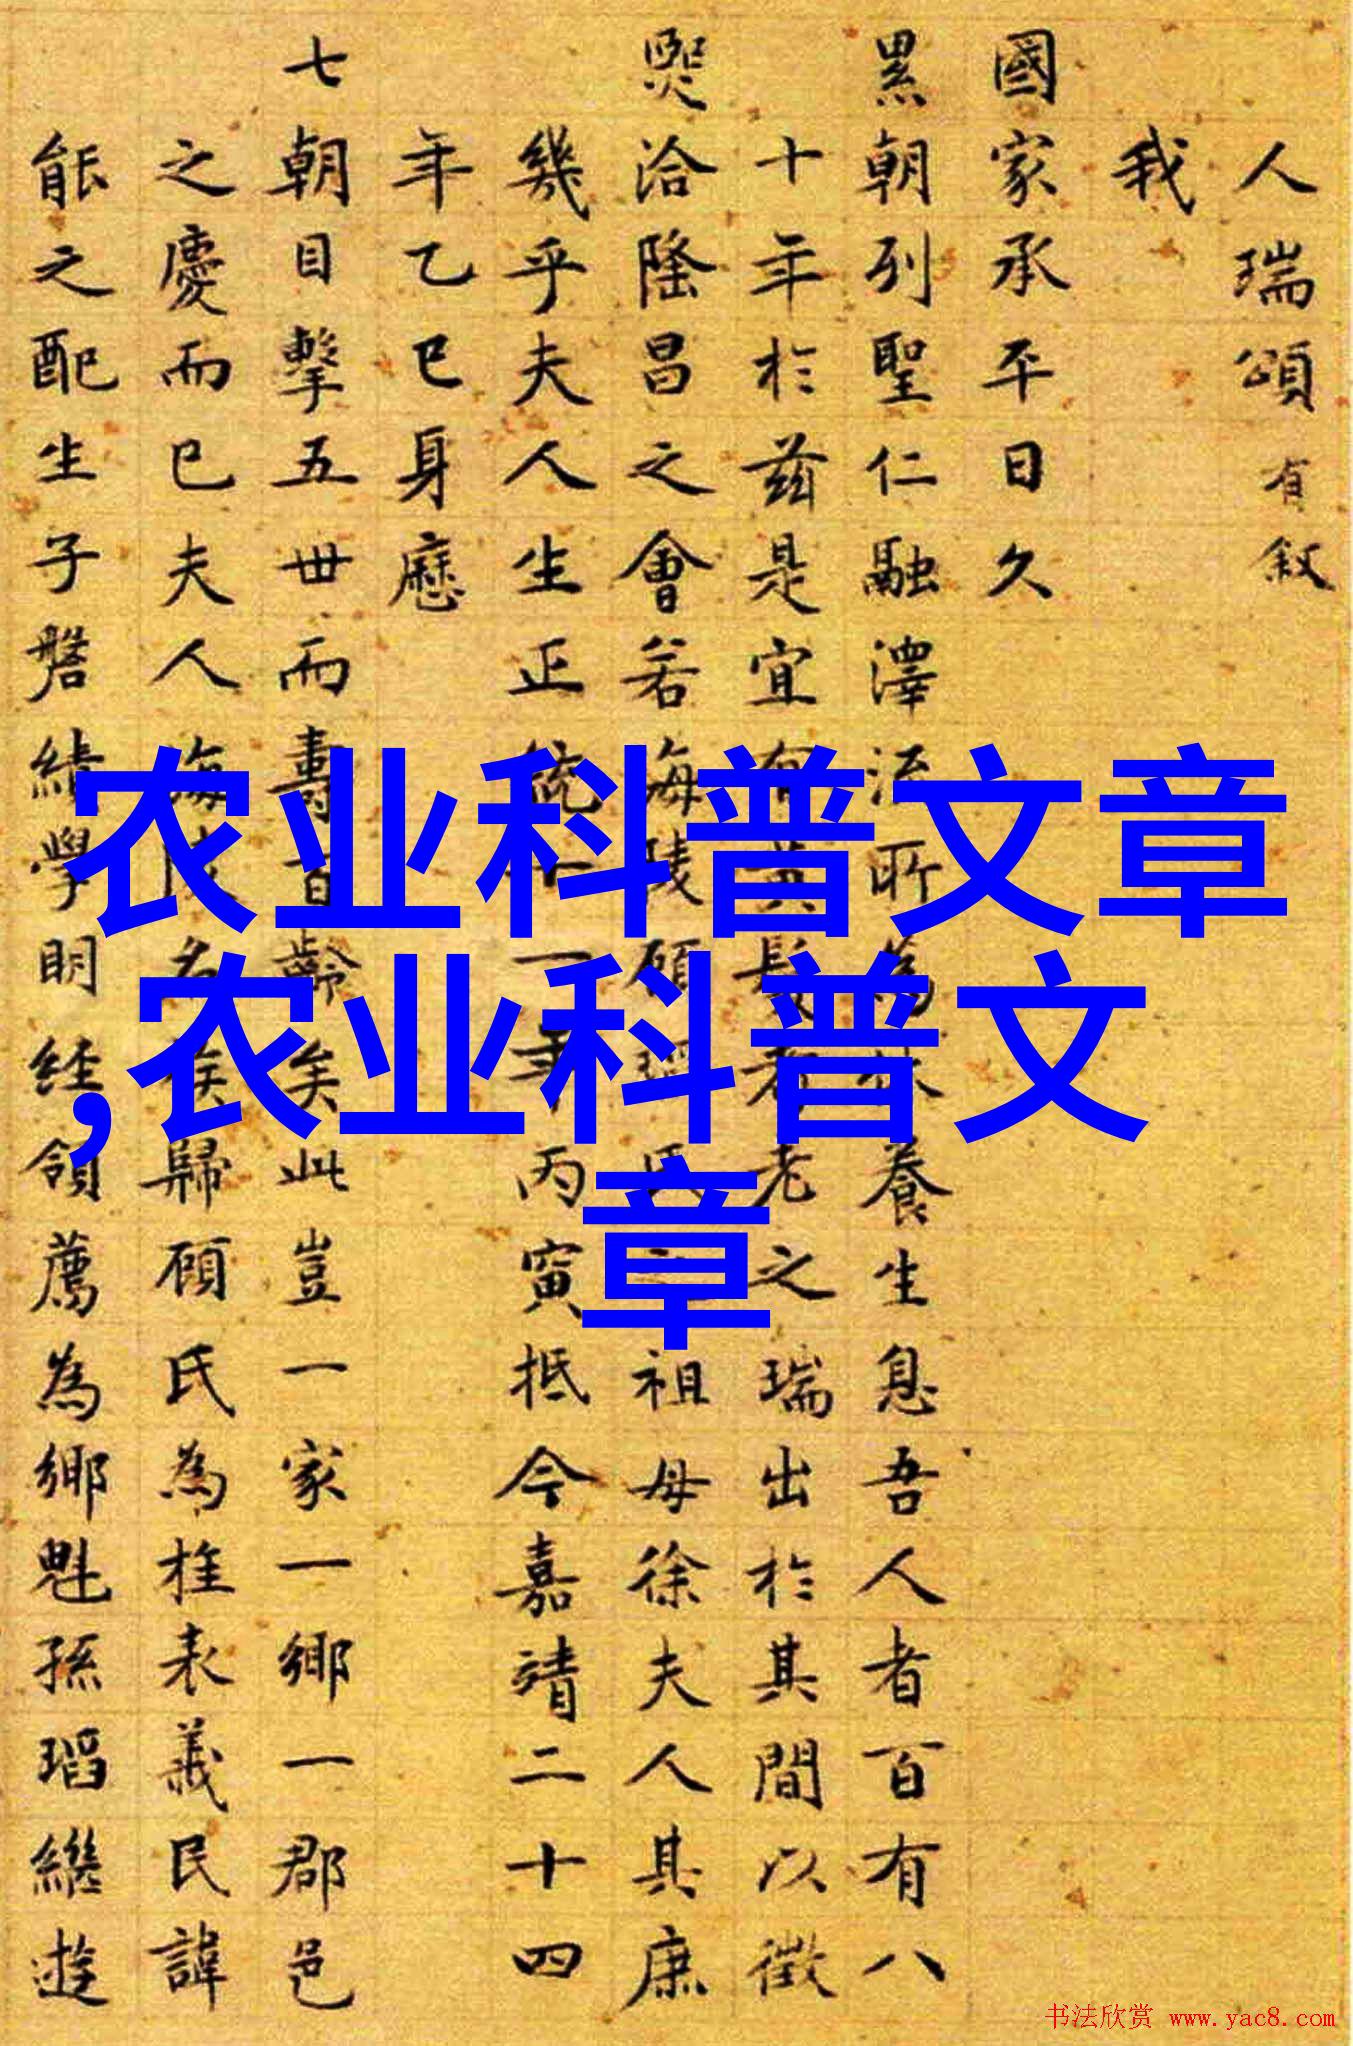 人瑞頌有叙
我
國家承平日久
累朝列聖仁融澤流所為休養生息吾人者百有八
十年於茲是宜有黃髮耆老之瑞出於其間以徵
熙洽隆昌之會若海陵顧氏之祖母徐夫人其庶
幾乎夫人生正統十一年丙寅抵今嘉靖二十四
年乙巳身歷
七朝目擊五世而壽百齡矣此豈一家一鄉一郡邑
之慶而已夫人海陵名族歸顧氏為旌表義民諱
能之配生子磐績學明經領薦為鄉魁孫瑫繼遊
农业科普文章
,农业科普文
章
书法欣赏 www.yac8.com